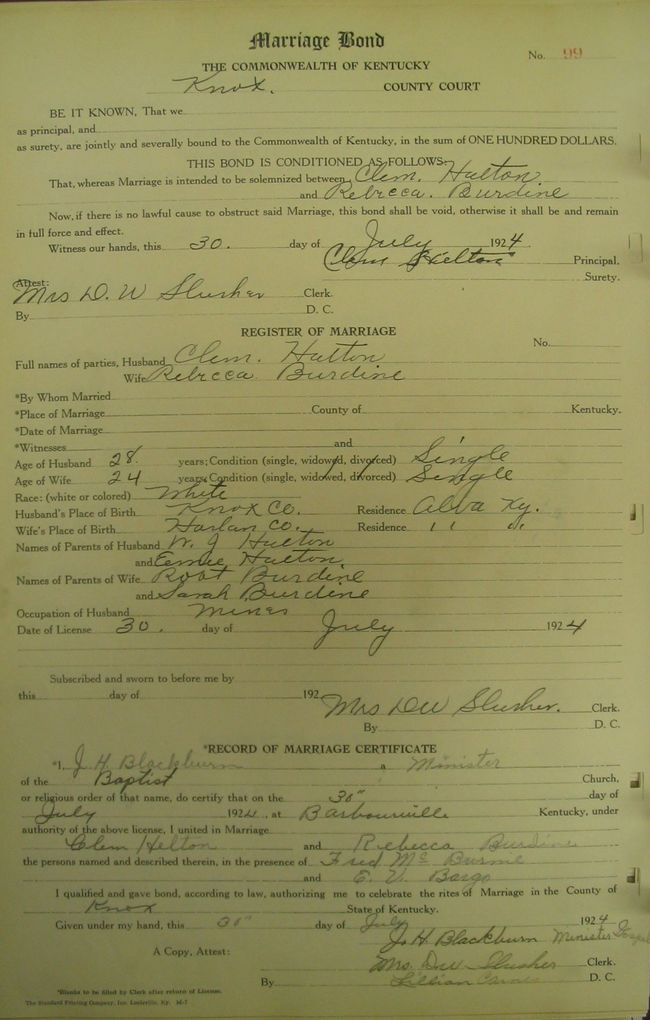 Marriage Bond
No. 99
THE COMMONWEALTH OF KENTUCKY
Knox. COUNTY COURT
BE IT KNOWN, That we
as principal, and
as surety, are jointly and severally bound to the Commonwealth of Kentucky, in the sum of ONE HUNDRED DOLLARS.
THIS BOND IS CONDITIONED AS FOLLOWS:
That, whereas Marriage is intended to be solemnized between Clem. Hulton
and Rebecca. Burdine
Now, if there is no lawful cause to obstruct said Marriage, this bond shall be void, otherwise it shall be and remain
in full force and effect.
Witness our hands, this 30. day of July 1924.
Clem Helton Principal,
Surety.
Attest:
Mrs D. W Slusher Clerk.
By D. C.
REGISTER OF MARRIAGE
No.
Full names of parties, Husband Clem. Hulton
Wife Rebecca Burdine
*By Whom Married
*Place of Marriage County of Kentucky.
*Date of Marriage
*Witnesses and
Age of Husband 28. years; Condition (single, widowed, divorced) Single
Age of Wife 24 years; Condition (single, widowed, divorced) Single
Race: (white or colored) White
Husband's Place of Birth Knox Co. Residence Alva Ky.
Wife's Place of Birth Harlan Co. Residence " "
Names of Parents of Husband W. J Hulton
and Hulton
Names of Parents of Wife Robt Burdine
and Sarah Burdine
Occupation of Husband Miner
Date of License 30. day of July 1924
Subscribed and sworn to before me by
this day of 192
Mrs D W Slusher. Clerk.
By D. C.
*RECORD OF MARRIAGE CERTIFICATE
*I, J H Blackburn a Minister
of the Baptist Church,
or religious order of that name, do certify that on the 30" day of
July 1924, at Barbourville Kentucky, under
authority of the above license, I united in Marriage
Clem Helton and Rebecca Burdine
the persons named and described therein, in the presence of Fred Mc
and E. V. Bargo
I qualified and gave bond, according to law, authorizing me to celebrate the rites of Marriage in the County of
Knox State of Kentucky.
Given under my hand, this 30" day of July 1924
J. H. Blackburn Minister Gospel
A Copy, Attest:
Mrs. D W Slusher Clerk.
By Lillian D. C.
*Blanks to be filled by Clerk after return of License.
The Standard Printing Company, Inc. Louisville, Ky. M-7